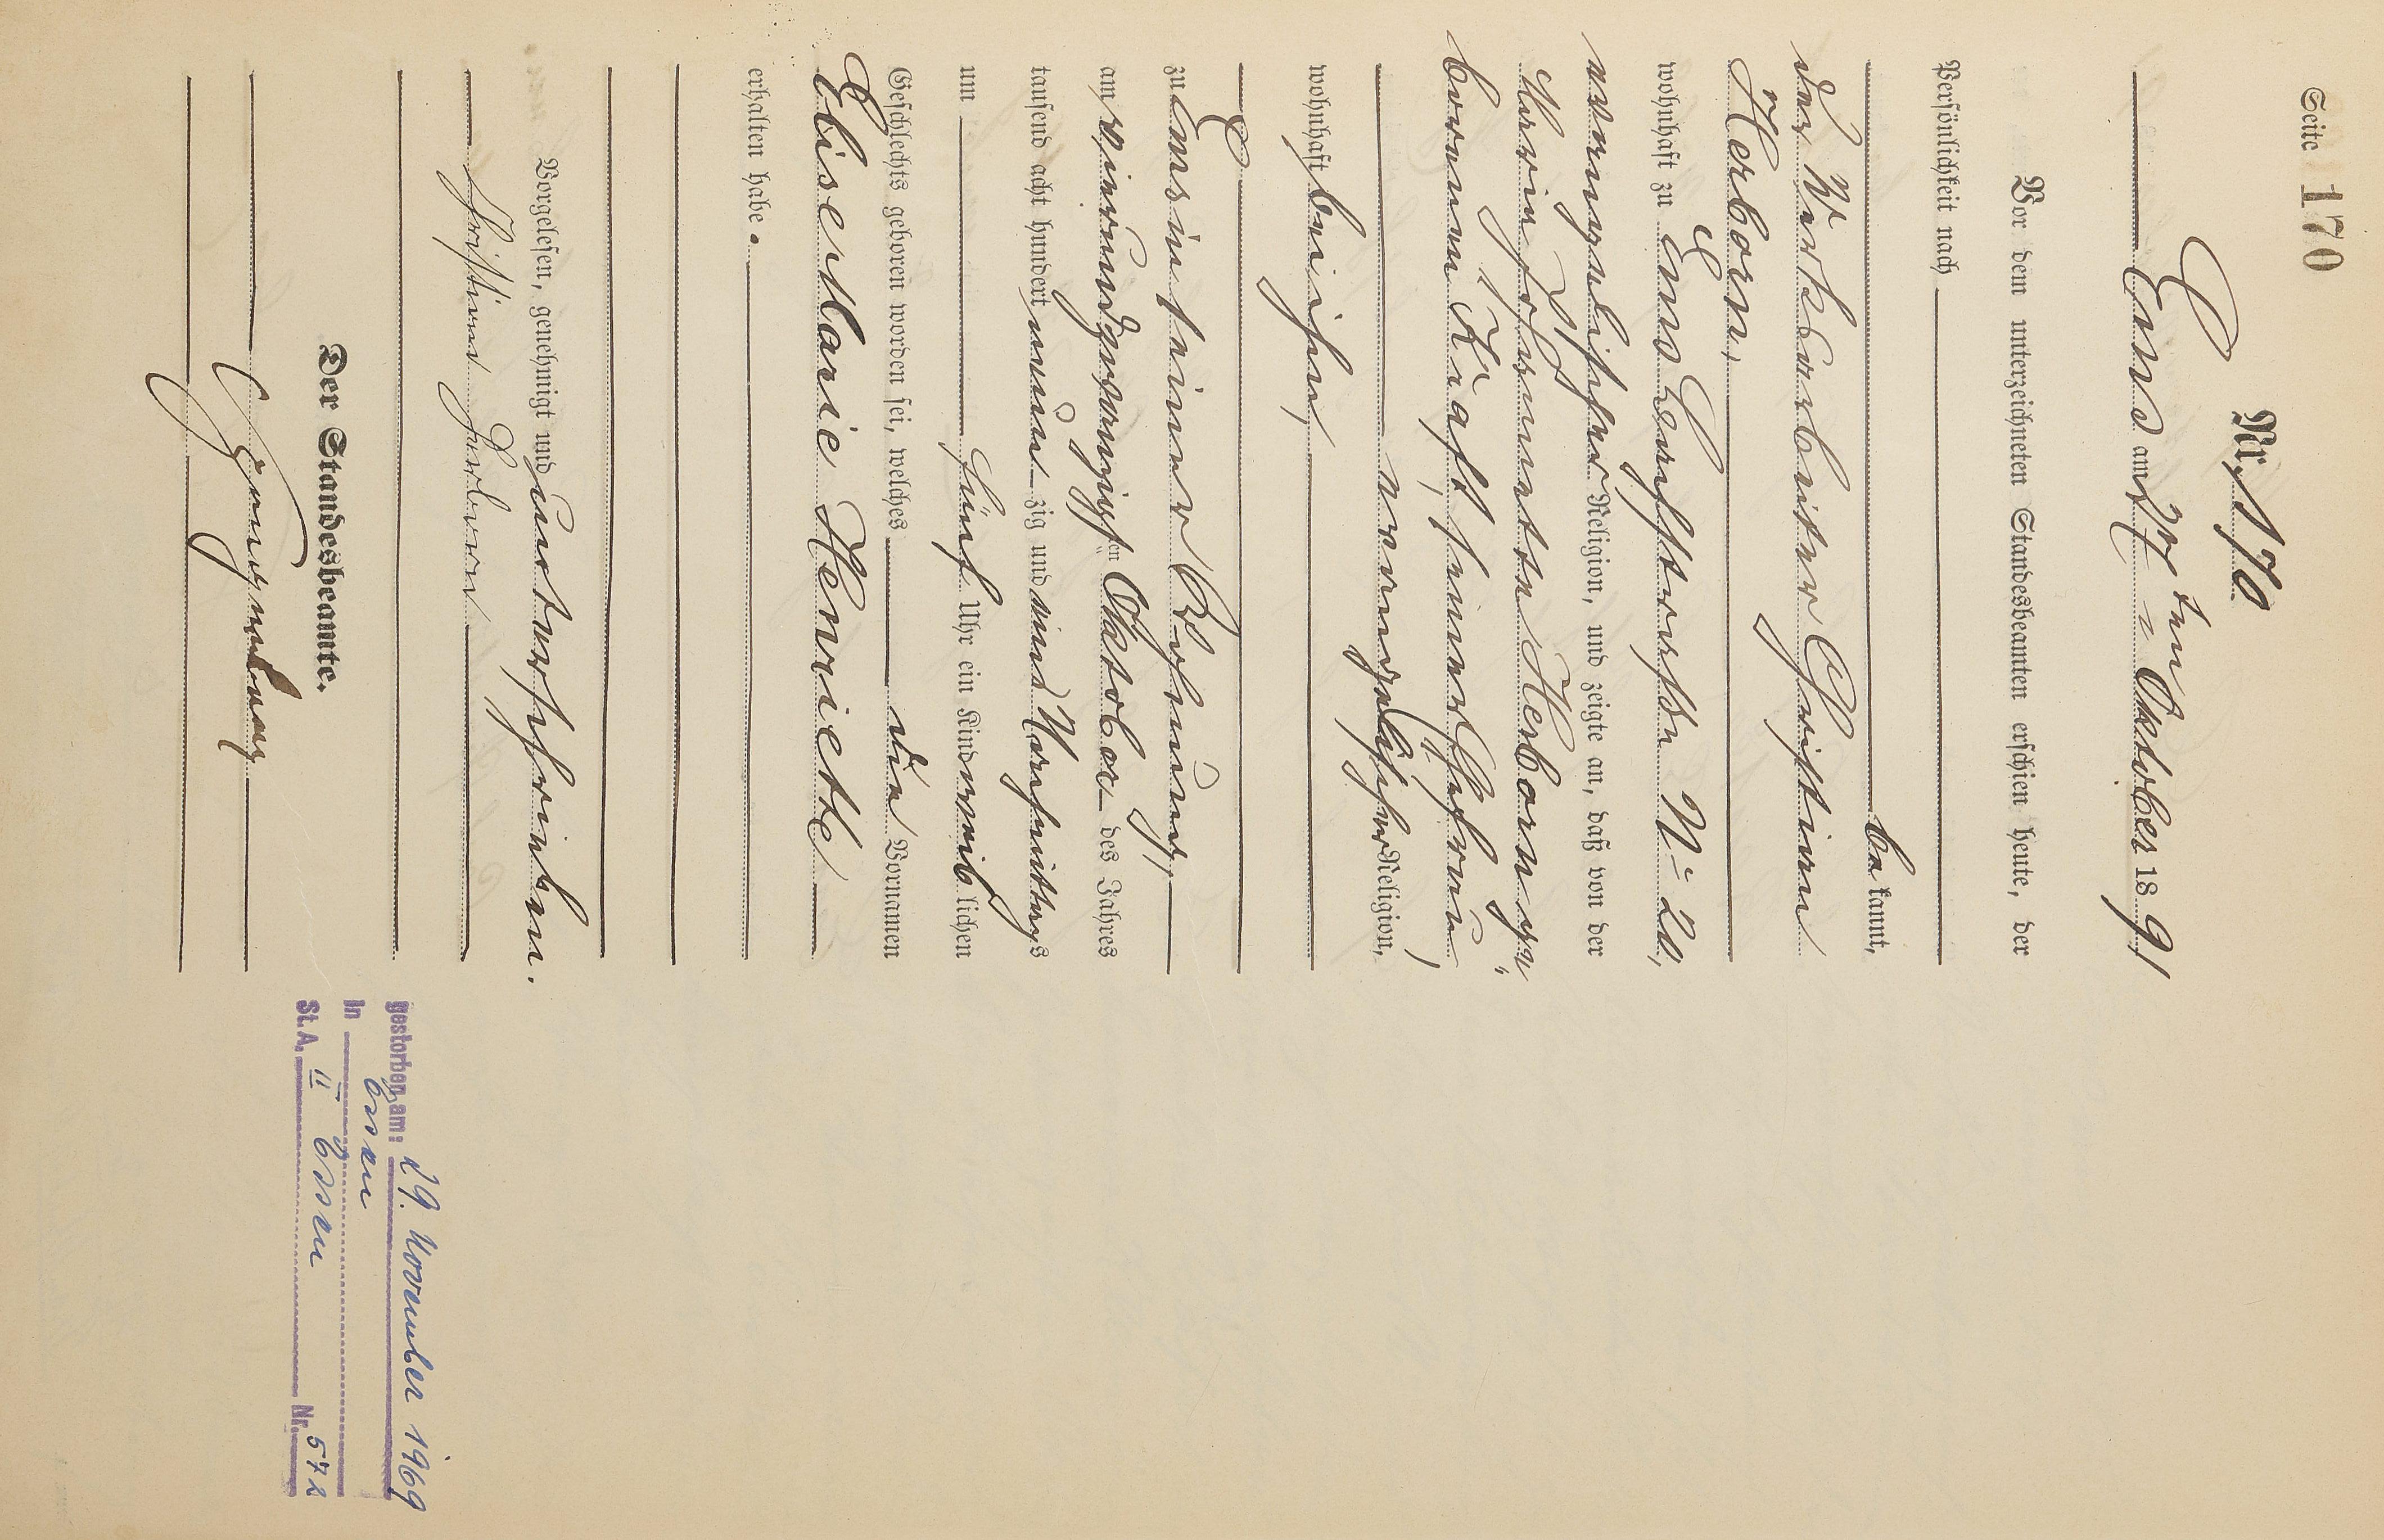 Seite 170
Nr. 170.
Ems am 27ten Oktober 1891
Vor dem unterzeichneten Standesbeamten erschien heute, der
Persönlichkeit nach
bekannt,
der Werkarbeiter Christian
Herborn,
wohnhaft zu Ems Bachstraße No 20,
evangelischer Religion, und zeigte an, daß von der
Herborn ge„
borenen Kraft, seiner Ehefrau,
evangelischer Religion,
wohnhaft bei ihm,
zu Ems in seiner Wohnung,
am vierundzwanzigsten Oktober des Jahres
tausend acht hundert neunzig und eins Nachmittags
um fünf Uhr ein Kind weiblichen
Geschlechts geboren worden sei, welches die Vornamen
Elise Marie Henriette
erhalten habe.
Vorgelesen, genehmigt und unterschrieben.
Christian Herborn
Der Standesbeamte.
gestorben am: 29. November 1969
in Essen
St.A. II Essen Nr. 572